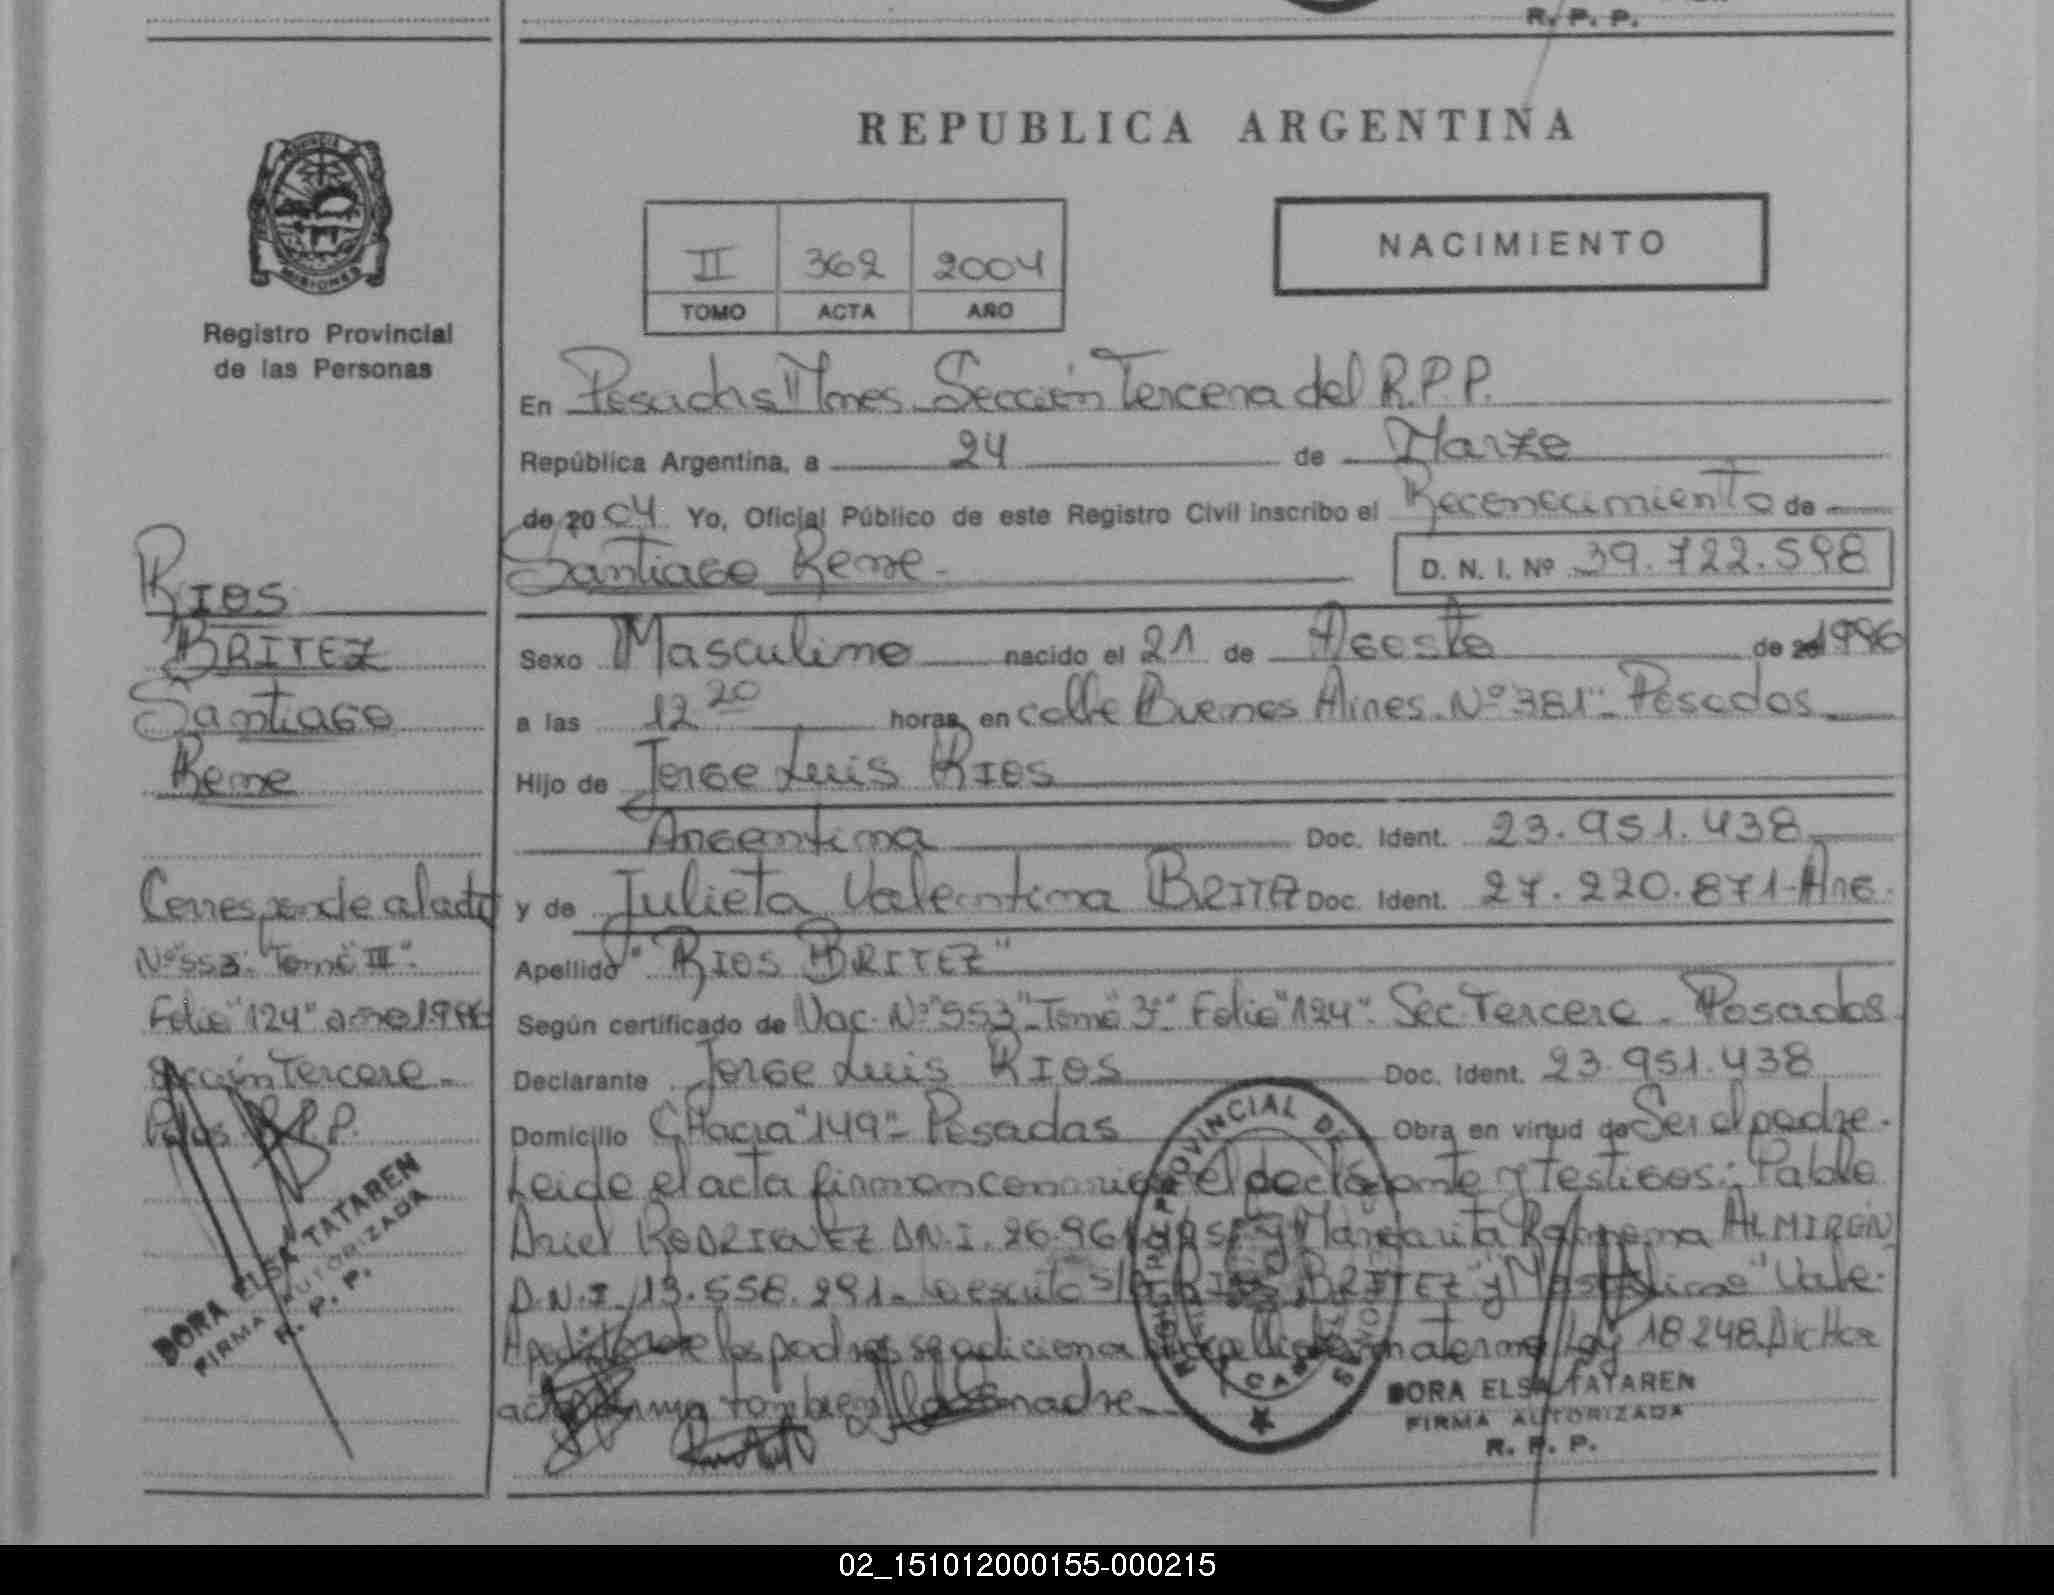 R. P. P.
REPUBLICA ARGENTINA
MISIONES
Registro Provincial
de las Personas
II 362 2004
TOMO ACTA AÑO
NACIMIENTO
En Posadas Mnes. Sección Tercera del R.P.P.
República Argentina, a 24 de Marzo
de 2004 Yo, Oficial Público de este Registro Civil inscribo el Reconocimiento de
Santiago Rene.-
D. N. I. Nº 39.722.598
Sexo Masculino nacido el 21 de Agosto de 1996
a las 12 20 horas, en calle Buenos Aires. Nº"381"- Posadas
Hijo de Jorge Luis RIOS
Argentina Doc. Ident. 23.951.438
y de Julieta Valentina BRITEZ Doc. Ident. 27.220.871-Arg.
Apellido "RIOS BRITEZ"
Según certificado de Nac. Nº"553"-Tomo"3º" Folio"124"- Sec. Tercera - Posadas.
Declarante Jorge Luis RIOS Doc. Ident. 23.951.438
Domicilio CHacra "149"- Posadas Obra en virtud de Ser el padre.
Leida el acta firman conmigo el declarante y testigos: Pablo
Ariel RODRIGUEZ D.N.I. 26.96 y Margarita Ramona ALMIRÓN
D.N.I. 13.558.291- Lo escrito s/r RIOS BRITEZ" y "Masculino" Vale.
A pedido de los padres se adiciona apellido materno Ley 18248. Dicha
acta firma tambien la madre.-
RIOS
BRITEZ
Santiago
Rene
Corresponde al acta
Nº"553". Tomo "III".
Folio "124" año 1996
Sección Tercera.-
Pdas R.P.P.
DORA ELSA TATAREN
FIRMA AUTORIZADA
R. P. P.
DORA ELSA TATAREN
FIRMA AUTORIZADA
R. P. P.
02_151012000155-000215